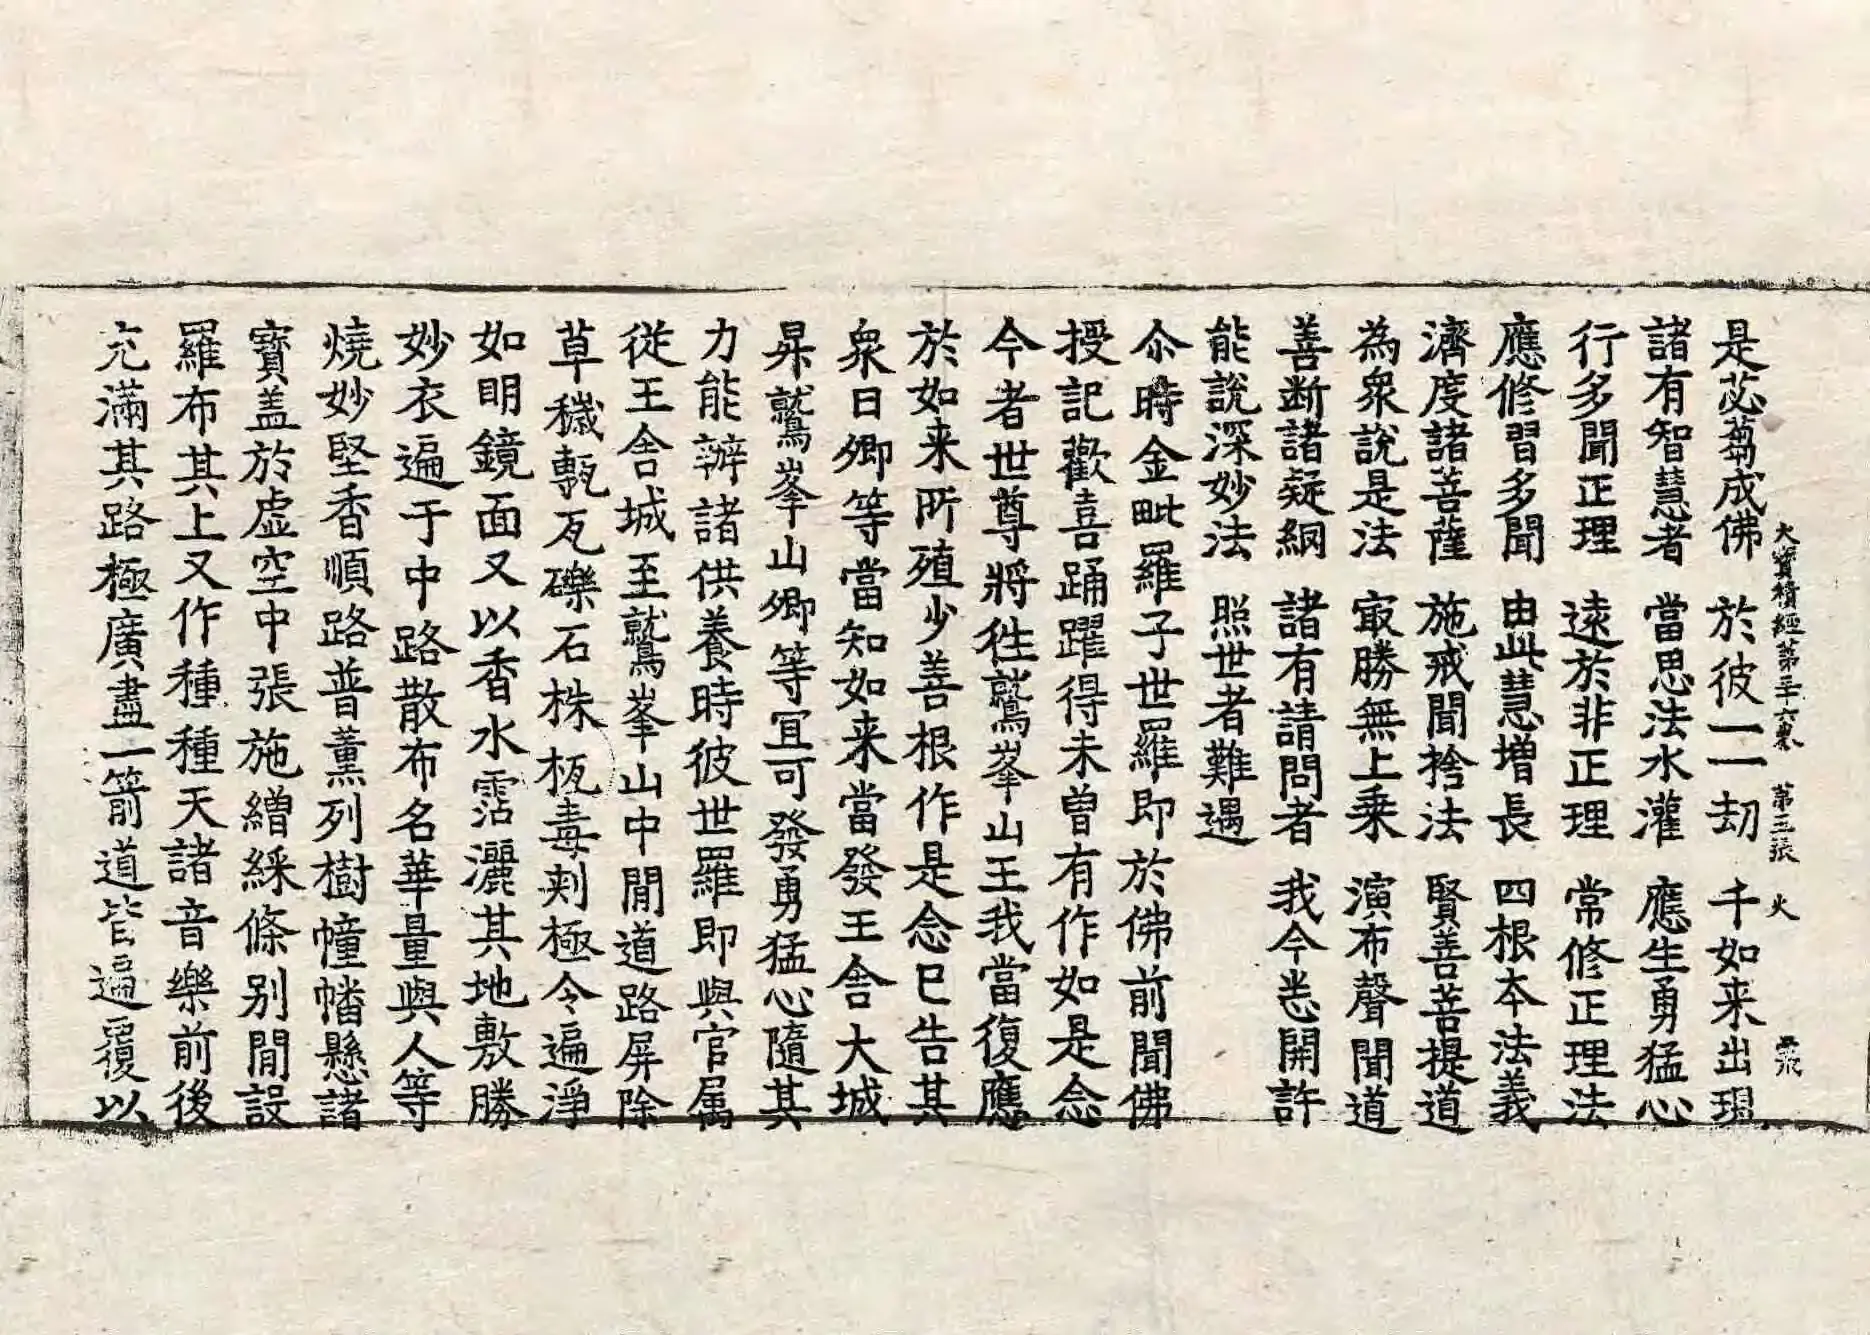 大寶積經第三十六卷　第三張　火
是苾蒭成佛　於彼一一劫　千如来出現
諸有智慧者　當思法水灌　應生勇猛心
行多聞正理　遠於非正理　常修正理法
應修習多聞　由此慧增長　四根本法義
濟度諸菩薩　施戒聞捨法　賢善菩提道
為衆說是法　㝡勝無上乘　演布聲聞道
善断諸疑網　諸有請問者　我今悉開許
能說深妙法　照世者難遇
尒時金毗羅子世羅即於佛前聞佛
授記歡喜踊躍得未曾有作如是念
今者世尊將徃鷲峯山王我當復應
於如来所殖少善根作是念已告其
衆曰卿等當知如来當發王舍大城
昇鷲峯山卿等冝可發勇猛心隨其
力能辦諸供養時彼世羅即與官属
従王舍城至鷲峯山中閒道路屏除
草穢甎瓦礫石株杌毒刺極令遍淨
如明鏡面又以香水霑灑其地敷勝
妙衣遍于中路散布名華量與人等
燒妙堅香順路普薫列樹幢幡懸諸
寳盖於虚空中張施繒綵條别閒設
羅布其上又作種種天諸音樂前後
充滿其路極廣盡一箭道皆遍覆以